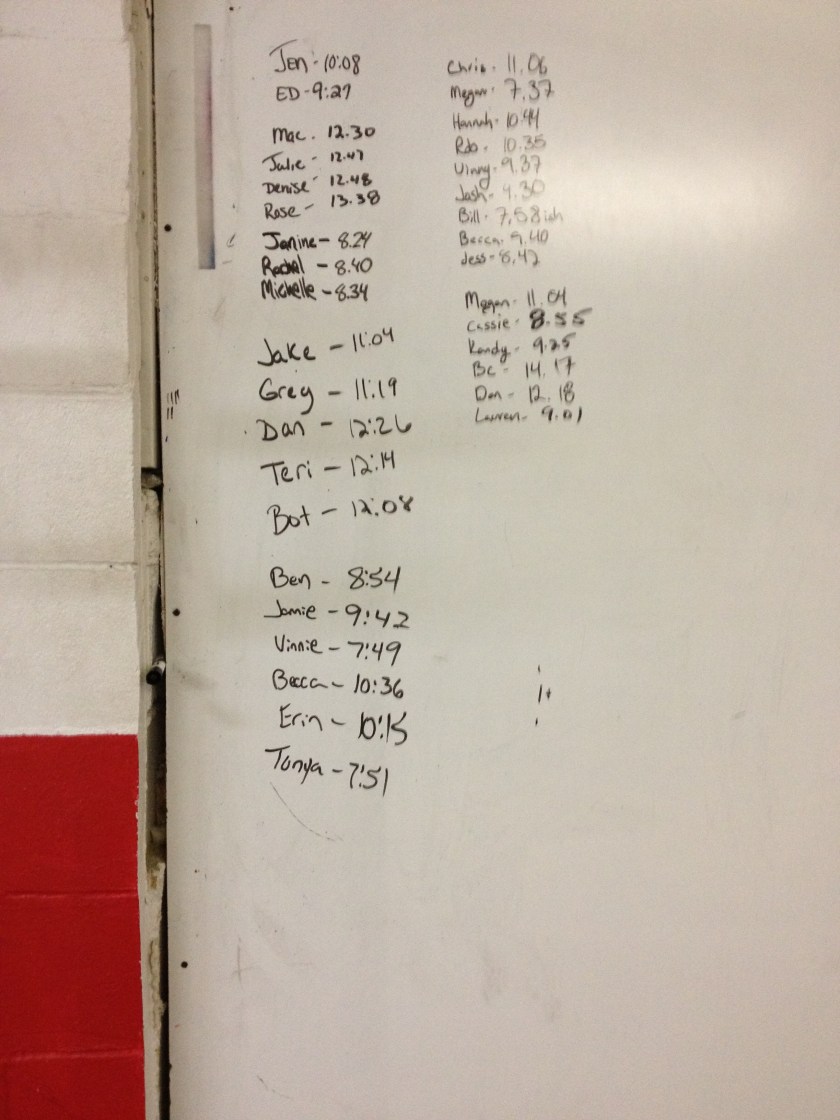 Jen - 10:08
ED - 9:27
Mac. 12.30
Julie - 12.47
Denise - 12.48
Rose - 13.38
Janine - 8.24
Rachal - 8.40
Michelle - 8.34
Jake - 11:04
Greg - 11:19
Dan - 12:26
Teri - 12:14
Bot - 12:08
Ben - 8:54
Jamie - 9:42
Vinnie - 7:49
Becca - 10:36
Erin - 10:15
Tonya - 7:51
Chris - 11.06
Megan - 7.37
Hannah - 10.44
Rob - 10.35
Vinny - 9.37
Josh - 9.30
Bill - 7,58ish
Becca - 9.40
Jess - 8,42
Megan - 11.04
Cassie - 8.55
Kendy - 9.25
Bc - 14.17
Dan - 12.18
Lauren - 9.01